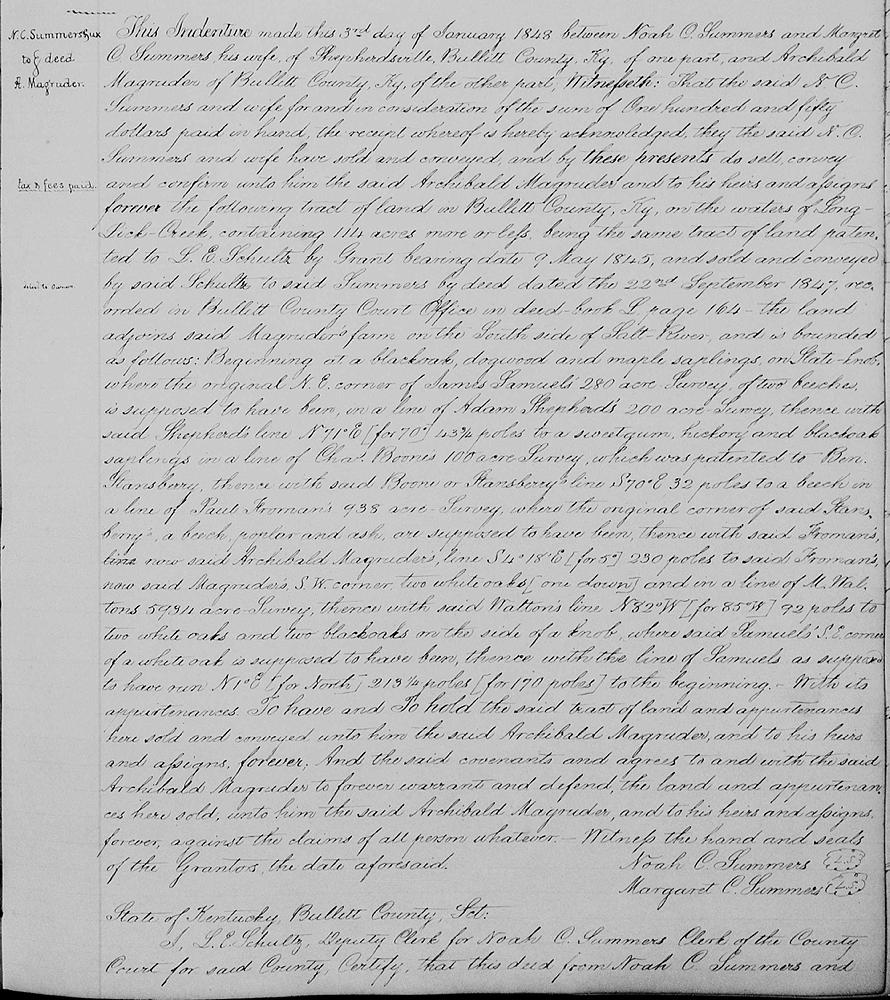 N. C. Summers & ux
to } deed
A. Magruder.
tax & fees paid.
This Indenture made this 3rd day of January 1848 between Noah C. Summers and Margret
C. Summers his wife, of Shepherdsville, Bullitt County, Ky. of one part, and Archibald
Magruder of Bullitt County, Ky. of the other part, Witnesseth: That the said N. C.
Summers and wife for and in consideration of the sum of One hundred and fifty
dollars paid in hand, the receipt whereof is hereby acknowledged, they the said N. C.
Summers and wife have sold and conveyed, and by these presents do sell, convey
and confirm unto him the said Archibald Magruder and to his heirs and assigns
forever the following tract of land in Bullitt County, Ky, on the waters of Long-
Lick-Creek, containing 114 acres more or less, being the same tract of land paten-
ted to L. E. Schultz by Grant bearing date 9 May 1845, and sold and conveyed
by said Schultz to said Summers by deed dated the 22nd September 1847, rec-
orded in Bullitt County Court Office in deed-book L page 164 - the land
adjoins said Magruder's farm on the South side of Salt-River, and is bounded
as follows: Beginning at a blackoak, dogwood and maple saplings, on State-knob,
where the original N. E. corner of James Samuels' 280 acre Survey, of two beeches,
is supposed to have been, in a line of Adam Shepherd's 200 acre-Survey, thence with
said Shepherd's line N 71° E [for 70°] 43¾ poles to a sweetgum, hickory and blackoak
saplings in a line of Chas. Boone's 100 acre Survey, which was patented to Ben.
Stansberry, thence with said Boone or Stansberry's line S 70° E 32 poles to a beech in
a line of Paul Froman's 938 acre-Survey, where the original corner of said Stans-
berry's, a beech, poplar and ash, are supposed to have been, thence with said Froman's,
line now said Archibald Magruder's, line S 4° 18' E [for 5°] 230 poles to said Froman's,
now said Magruder's, S. W. corner, two white oaks [one down] and in a line of M. Wal-
tons 5934 acre-Survey, thence with said Walton's line N 82° W [for 85° W] 92 poles to
two white oaks and two blackoaks on the side of a knob, where said Samuels' S. E. corner
of a white oak is supposed to have been, thence with the line of Samuels as supposed
to have run N 1° E [for North] 213¼ poles [for 170 poles] to the beginning. - With its
appurtenances To have and To hold the said tract of land and appurtenances
here sold and conveyed unto him the said Archibald Magruder, and to his heirs
and assigns, forever; And the said covenants and agrees to and with the said
Archibald Magruder to forever warrant and defend, the land and appurtenan-
ces here sold, unto him the said Archibald Magruder, and to his heirs and assigns,
forever, against the claims of all person whatever. - Witness the hand and seals
of the Grantors, the date aforesaid.
Noah C. Summers L.S.
Margaret C. Summers L.S.
State of Kentucky, Bullitt County, Sct:
I, L. E. Schultz, Deputy Clerk for Noah C. Summers Clerk of the County
Court for said County, Certify, that this deed from Noah C. Summers and